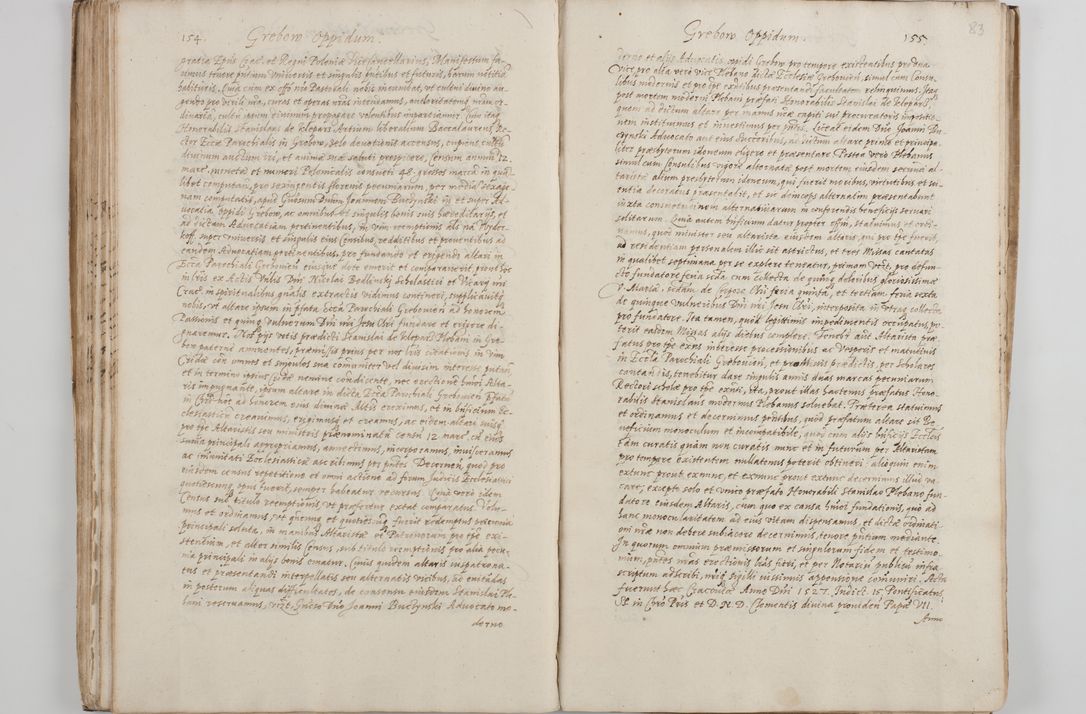 154. Grebow Oppidum.
gratia Epūs Crac. et Regni Poloniæ Vicecancellarius, Manifestum fa-
cimus tenore pntium Vniversis et singulis pntibus et futuris, harum notitiā
habituris. Quia cum ex offō nro Pastorali nobis incumbat, ut cultui divino au-
gendo pro virili nra, curas et operas nras intendamus, authoritatemq nram or-
dinariā, cultū ipsum divinum propagare volentibus impartiamur. Cum itaq
Honorabilis Stanislaus de Klepari Artium liberalium Baccalaureus Re-
ctor Eccæ Parochialis in Grebow, zelo devotionis accensus, cupiens cultū
divinum auctum iri, et animæ suæ saluti prospicere, Censum annuū 12.
marc. monetæ et numeri Polonicalis consueti 48. grossos marcā in quā
libet computan. pro sexingentis florenis pecuniarum, per media sexage-
nam computatis, apud Gnosum Dnum Joannem Buczynski in et super Ad-
vocatia oppidi Grebow, ac omnibus et singulis bonis suis hæreditarijs, et
ad dictam Advocatiam pertinentibus, in vim reemptionis als na Wyder-
koff, super universis et singulis eius Censibus, redditibus et proventibus ad
eandem Advocatiam pertinentibus, pro fundando et erigendo altari in
Eccā Parochiali Greboviens eiusque dote emerit et comparaverit, prout hoc
in lris ex Actis Vnblis Dni Nicolai Bedlinski Scholastici et Vicarij nri
Crac. in spiritualibus gnalis extractis vidimus contineri, supplicavitq
nobis, ut altare ipsum in pfata Eccā Parochiali Grebovien ad honorem
Passionis et quinq vulnerum Dni nri Jesu Xri fundare et erigere di-
gnaremur. Nos pijs votis prædicti Stanislai de Klepari Plebani in Gre-
bow paternè annuentes, præmissis prius per nos lris citationum in vim
Cridæ cōn omnes et singulos sua communiter vel divisim interesse putan.
et in termino ipsius Cridæ nemine contradicente, nec erectionē huiusi Alta-
ris impugnante, ipsum altare in dicta Eccā Parochiali Grebovien pfato
in Xri nōe ad honorem eius divinæ Mtis ereximus, et in bnficium Ec-
clesiasticū creavimus, erigimusq et creamus, ac eidem altari suisq
pro tpe Altaristis seu ministris prænominatū censū 12 marc. cū eius
summa principali appropriamus, annectimus, incorporamus, invisceramus
ac immunitati Ecclesiasticæ ascribimus per pntes. Decernen. quod pro
eiusdem census repetitione et omni actione ad forum Judicis Ecclesiastici
quotiescunq opus fuerit, semper habeatur recursus. Quia verò idem
Census sub titulo reemptionis, ut præfertur extat comparatus. Volu-
mus et ordinamus, ut quumq et quotiescunq fuerit redemptus pecunia
principali soluta, in manibus Altaristæ et Patronorum pro tpe exi-
stentium, et alter similis Census, sub titulo reemptionis pro alia pecu-
nia principali in alijs bonis ematur. Cuius quidem altaris iuspatrona-
tus et præsentandi interpellatis seu alternatis vicibus, ac evitandas
in posterum aliquas difficultates, de consensu eiusdem Stanislai Ple-
bani reservamus, vizt. Gnoso Dno Joanni Buczynski Advocato mo-
derno
Grebow Oppidum. 155
83
derno et alijs Advocatis oppidi Grebow pro tempore existentibus pro una
vice pro alia verò vice Plebano dictæ Ecclesiæ Grebovien, simul cum Consu-
libus modernis et pro tpe exntibus præsentandi facultatem relinquimus. Itaq
post mortem moderni Plebani præfati Honorabilis Stanislai de Klepari
quem ad dictum altare per manus nræ capiti sui procuratoris impositio-
nem instituimus et investimus per pntes. Liceat eidem Dno Joanni Bu-
czynski Advocato aut eius Successoribus, ad dictum altare primò et principa-
liter præsbyterum idoneum eligere et præsentare. Postea verò Plebanus
simul cum Consulibus vigore alternatæ post mortem eiusdem secundi al-
taristæ alium presbyterum idoneum, qui fuerit moribus, virtutibus et sci-
entia decoratus præsentabit, et sic deinceps alternatim præsentabunt
iuxta consuetudinem alternativarum in conferendis beneficijs servari
solitarum. Quia autem bnficium datur propter offm, statuimus et ordi-
namus, quòd minister seu altarista eiusdem altaris, qui pro tpe fuerit,
ad residentiam personalem illic sit astrictus, et tres Missas cantatas
in qualibet septimana per se explere teneatur, primam vizt. pro defun-
cto fundatore feria scda cum Collecta de quinq doloribus gloriosissimæ
V. Mariæ, scdam de Corpore Xri feria quinta, et tertiam feria sexta
de quinque vulneribus Dni nri Jesu Xri, interposita in utraq collecta
pro fundatore. Ita tamen, quòd legittimis impedimentis occupatus, po-
terit easdem Missas alijs diebus complere. Tenebr aūt Altarista præ-
fatus pro tpe exns interesse processionibus ac Vesperis et matutinis
in Eccla Parochiali Grebovien, et pro Missis prædictis, per scholares
cantandis, tenebitur dare singulis annis duas marcas pecuniarum
Rectori scholæ pro tpe exnti, ita, prout illas hactenus præfatus Hono-
rabilis Stanislaus modernus Plebanus solvebat. Præterea statuimus
et ordinamus et decernimus pntibus, quòd præfatum altare sit Be-
neficium monoculum et incompatibile, quòd cum alijs bnficijs Ecclesiæ
tam curatis quàm non curatis nunc et in futurum per Altaristam
pro tempore existentem nullatenus poterit obtineri: alioquin enim
extunc prout exnunc, et exnunc prout extunc decernimus illud va-
care; excepto solo et unico præfato Honorabili Stanislao Plebano fun-
datore eiusdem Altaris, cum quo ex causa huius fundationis, quo ad
hanc monocularitatem ad eius vitam dispensamus, et dictæ ordinati-
oni nræ non debere subiacere decernimus, tenore pntium mediante.
In quorum omnium præmissorum et singulorum fidem et testimo-
nium, pntes nras erectionis lras fieri, et per Notarium publicū infra
scriptum adscribi, nriq sigilli iussimus appensione communiri. Acta
fuerunt hæc Cracoviæ Anno Dni 1527. Indict. 15 Pontificatus
SS. in Chro Pris et D. N. D. Clementis divina providen Papæ VII.
Anno